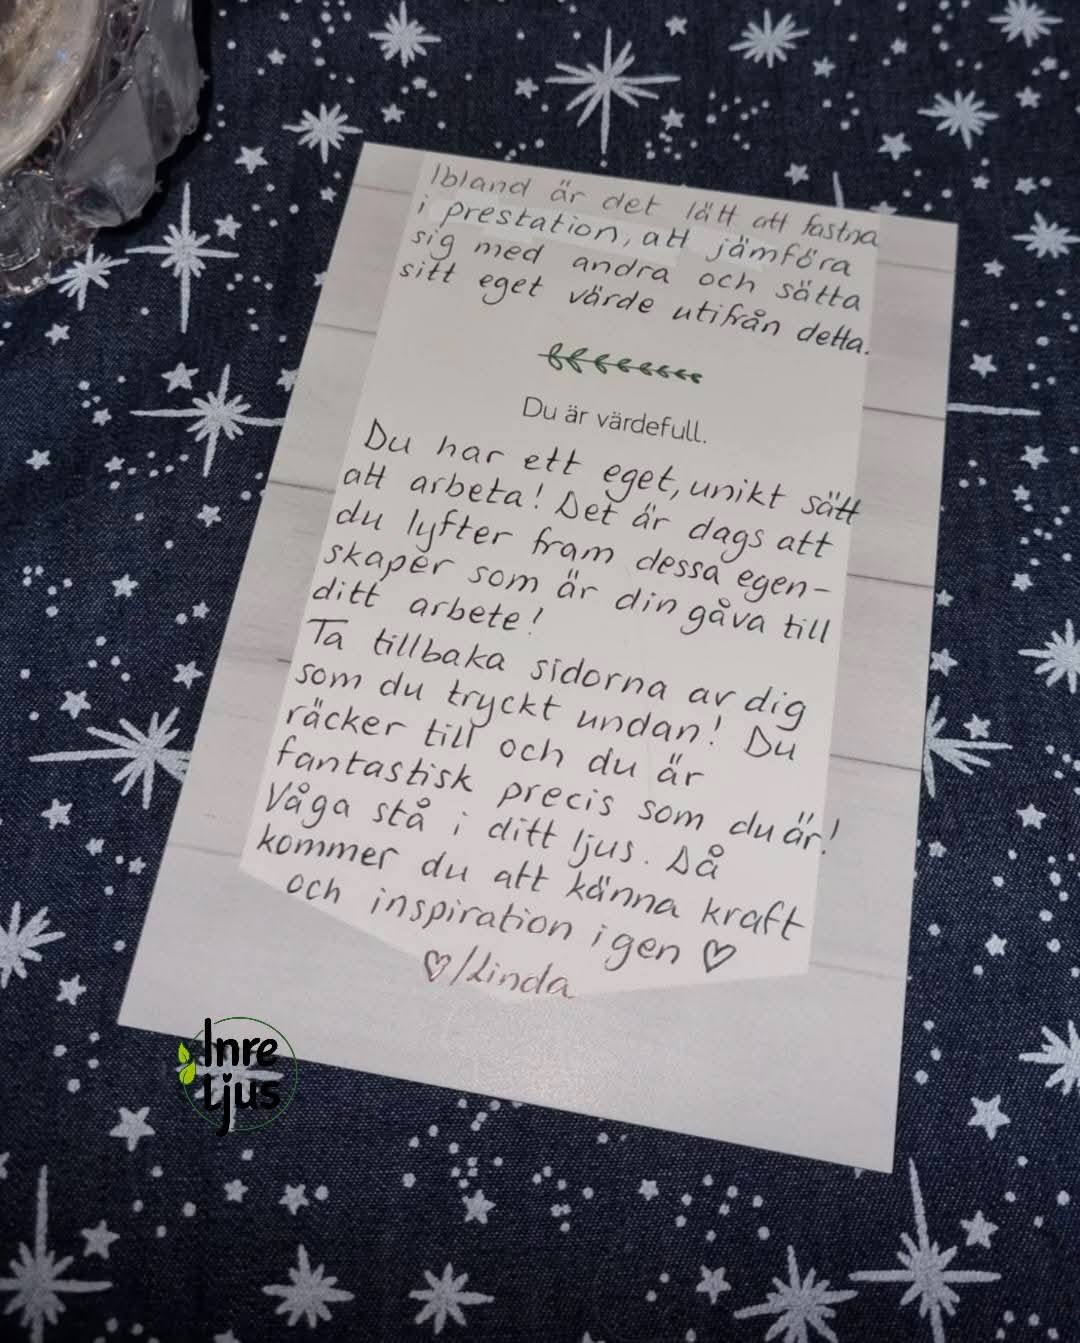 Ibland är det lätt att fastna
i prestation, att jämföra
sig med andra och sätta
sitt eget värde utifrån detta.
Du är värdefull.
Du har ett eget, unikt sätt
att arbeta! Det är dags att
du lyfter fram dessa egen-
skaper som är din gåva till
ditt arbete!
Ta tillbaka sidorna av dig
som du tryckt undan! Du
räcker till och du är
fantastisk precis som du är!
Våga stå i ditt ljus. Då
kommer du att känna kraft
och inspiration igen ♡
♡/Linda
Inre
Ljus